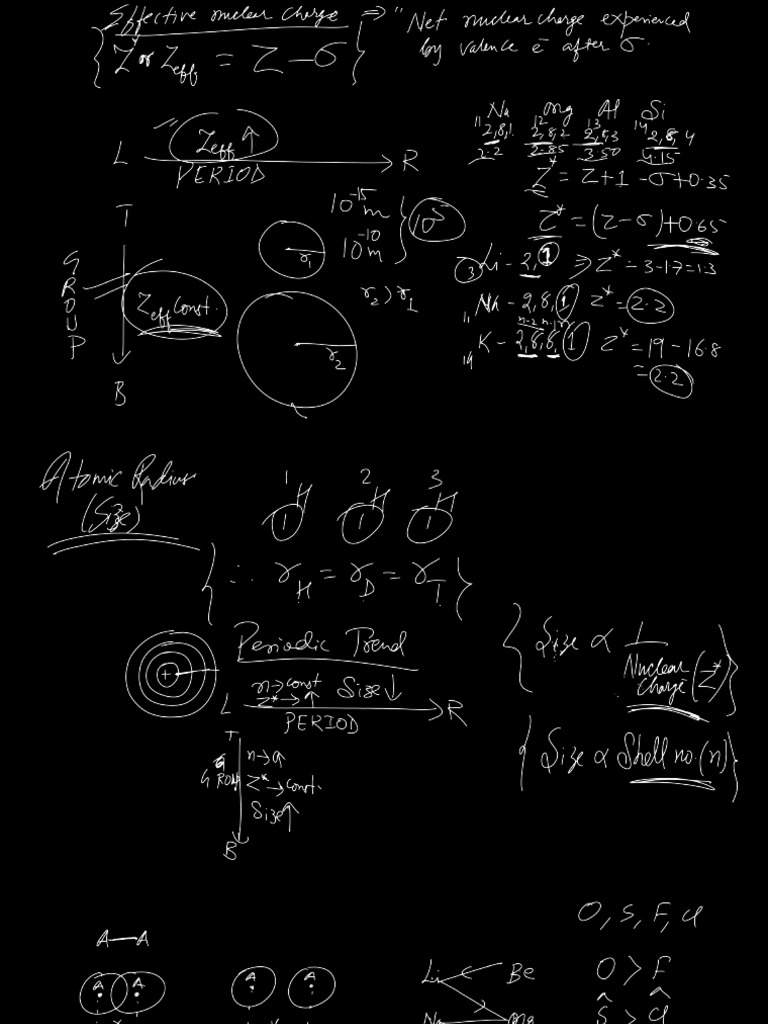 Effective nuclear charge ⇒ "Net nuclear charge experienced
by valence e⁻ after σ.
Z* or Zeff = Z − σ
L Zeff ↑ R
PERIOD
Na Mg Al Si
11 12 13 14
2,8,1 2,8,2 2,8,3 2,8,4
2.2 2.85 3.50 4.15
Z* = Z+1 − σ+0.35
Z* = (Z−σ)+0.65
T
GROUP
Zeff Const.
B
10⁻¹⁵ m
10⁻¹⁰ m
10⁵
r₁
r₂ > r₁
r₂
3 Li − 2,1 ⇒ Z* = 3−1.7=1.3
11 Na − 2,8,1 Z* = 2.2
n-2 n-1 n
19 K − 2,8,8,1 Z* = 19 − 16.8
= 2.2
Atomic Radius
(Size)
1 2 3
H H H
1 1 1
∴ r_H = r_D = r_T
Periodic Trend
+
n→const Size↓
Z*→↑
L PERIOD R
T
GROUP
n→↑
Z*→const.
Size↑
B
Size ∝ 1
Nuclear
Charge (Z*)
Size ∝ Shell no. (n)
A—A
A A A A
Li Be
Na Mg
O, S, F, Cl
O > F
S > Cl